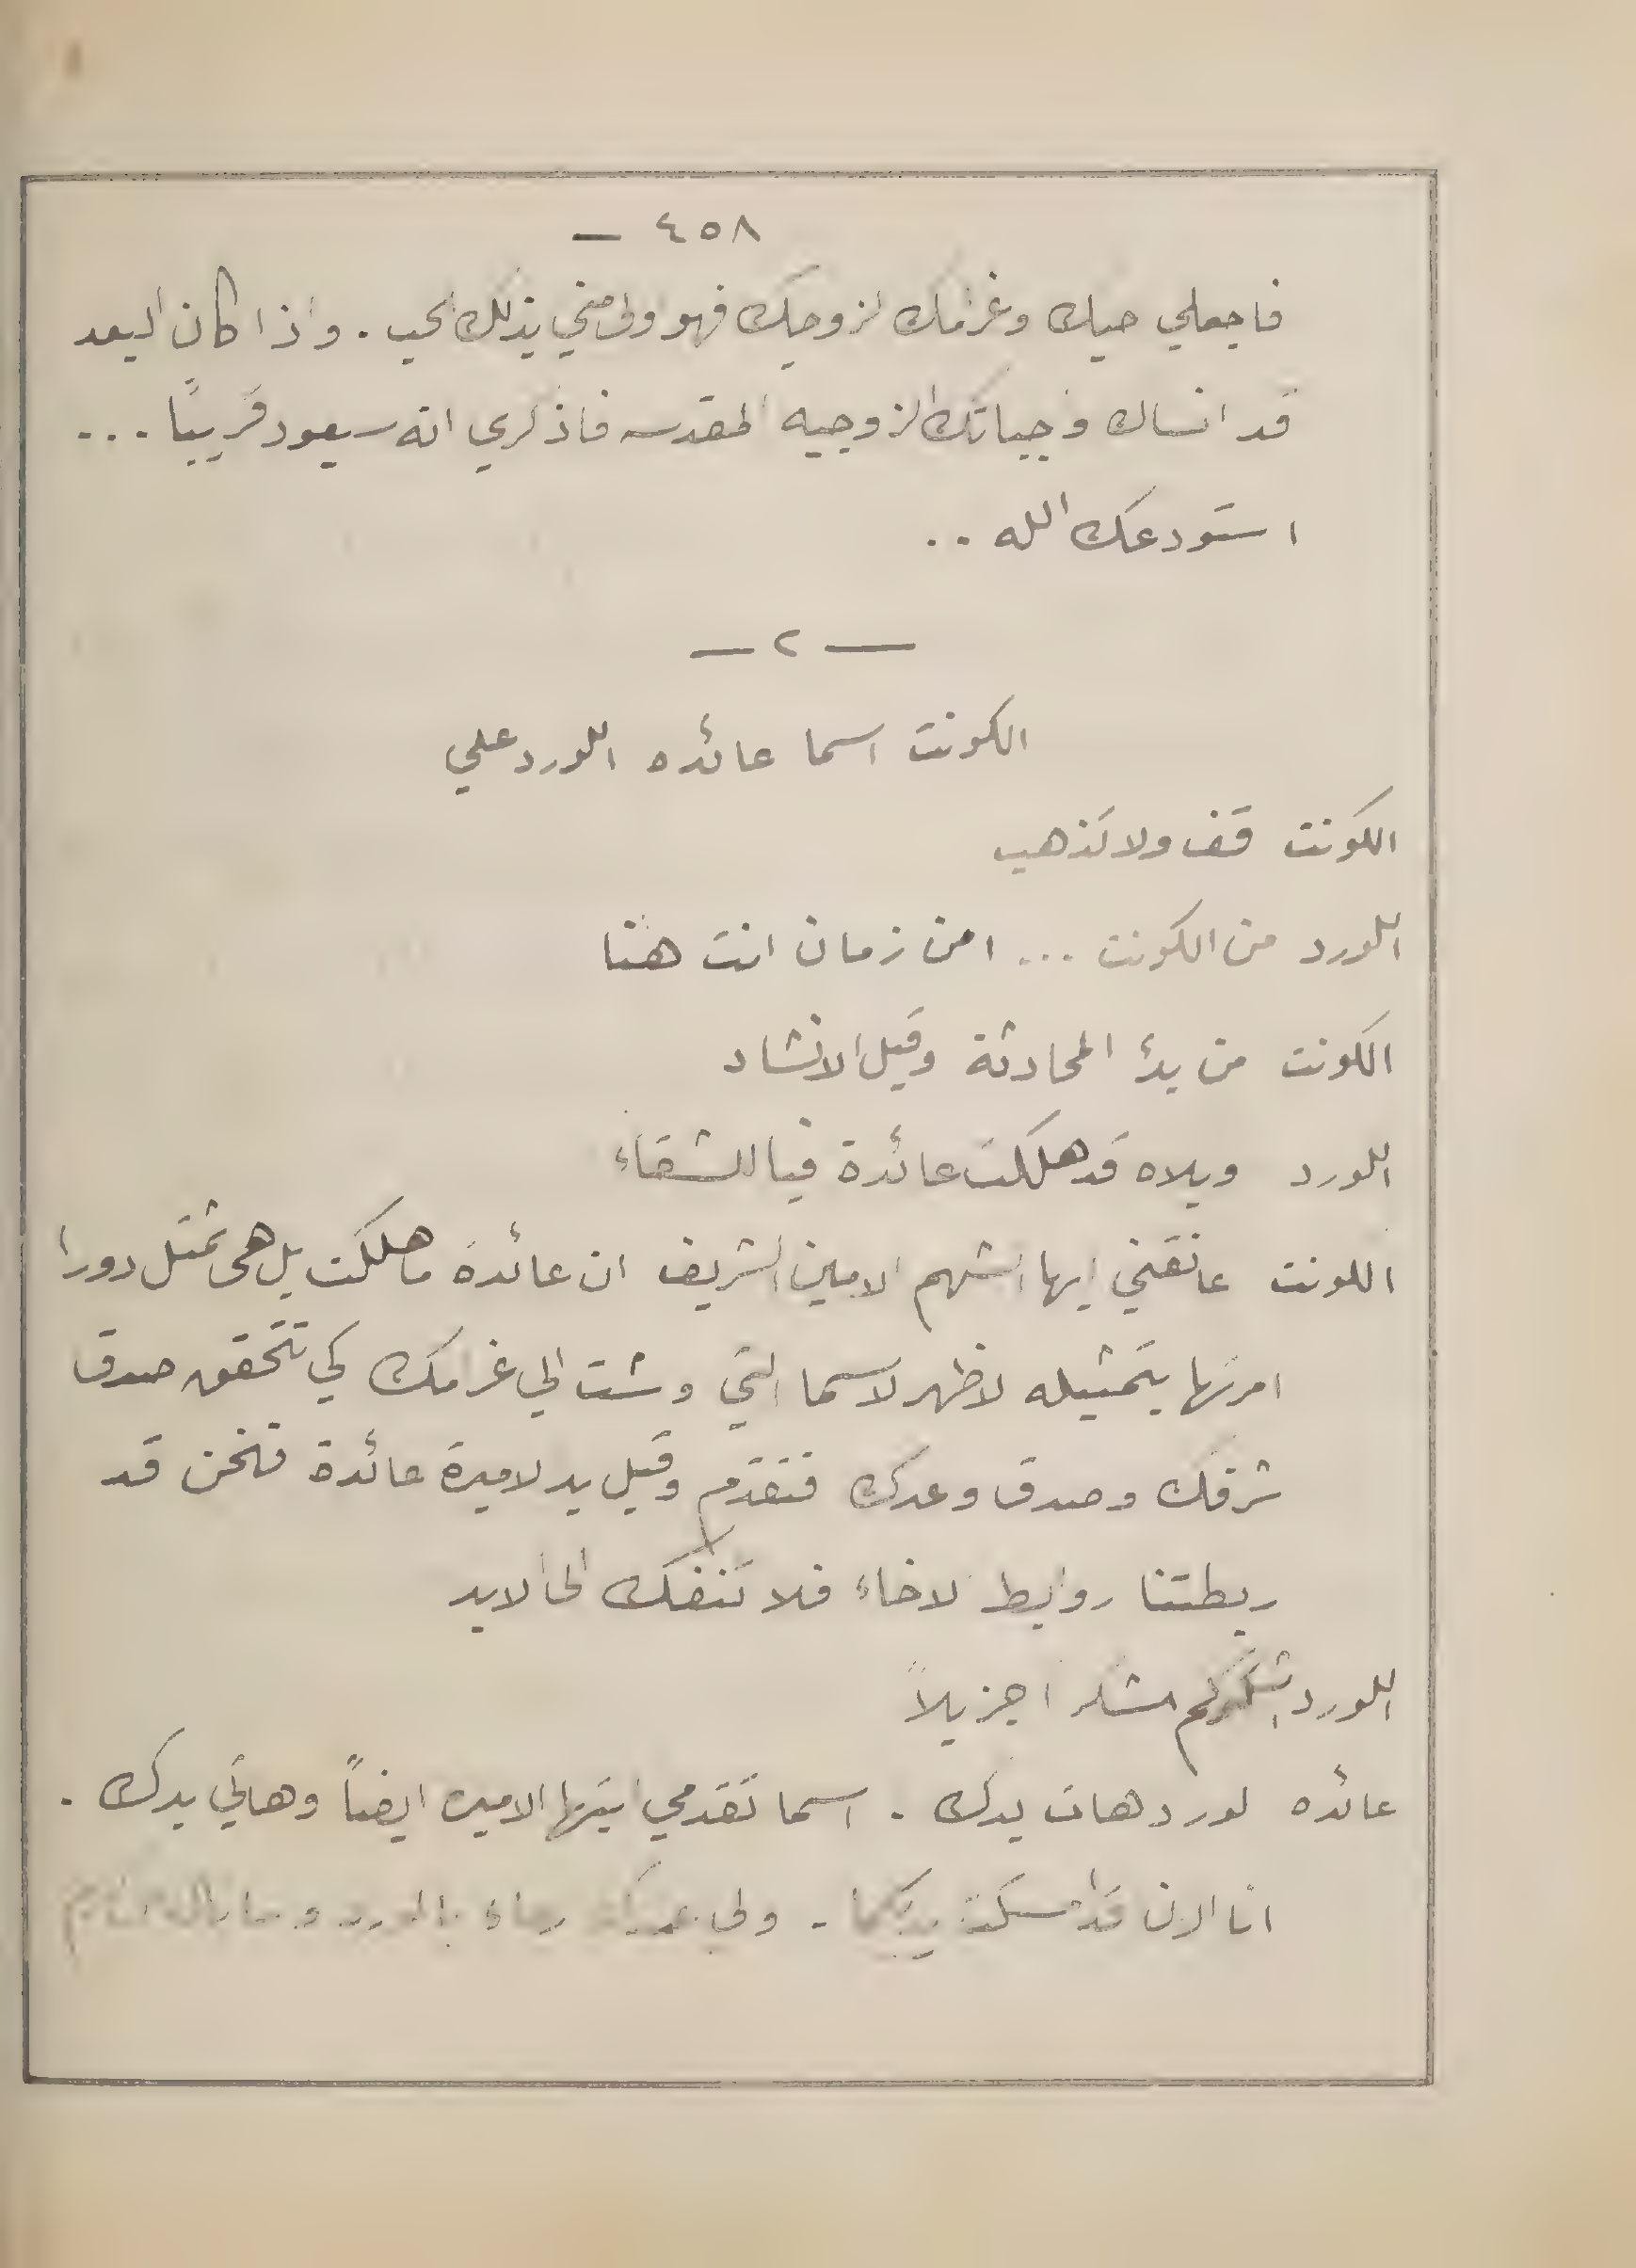 ٤٥٨ —
فاجعلي حبك وغرامك لزوجك فهو اولى مني بذلك الحب . واذا كان البعد
قد انساك واجباتك الزوجيه المقدسه فاذكري انه سيعود قريبًا ...
استودعك الله ..
— ٢ —
الكونت اسما عائده اللورد علي
الكونت قف ولا تذهب
اللورد من الكونت ... امن زمان انت هنا
الكونت من بدء المحادثة وقبل الانشاد
اللورد ويلاه قد هلكت عائدة فيا للشقاء
الكونت عانقني ايها الشهم الامين الشريف ان عائدة ما هلكت بل هي تمثل دورا
امرتها بتمثيله لاظهر لاسما التي وشت الي غرامك كي تتحقق صدق
شرفك وصدق وعدك فتقدم وقبل يد الاميرة عائدة فنحن قد
ربطتنا روابط الاخاء فلا تنفك الى الابد
اللورد اشكركم شكرا جزيلاً
عائده لورد هات يدك . اسما تقدمي ايتها الاميره ايضاً وهاتي يدك .
انا الان قد امسكت يديكما . ولي